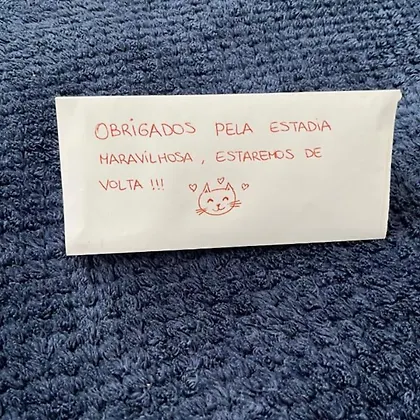 OBRIGADOS PELA ESTADIA
MARAVILHOSA, ESTAREMOS DE
VOLTA !!!